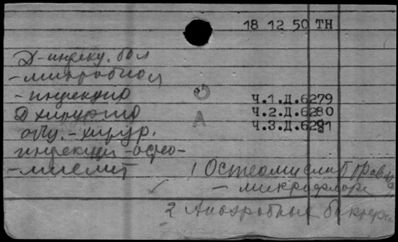 18 12 50 ТН
Д-инфекц. бол
-микробиол
-инфекцию
Д хирургию
опу.-хирур.
инфекци-остео-
-миелит
Ч.1.Д.6279
А Ч.2.Д.6280
Ч.3.Д.6281
1 Остеомиелит
- микрофлора
2 Анаэробные